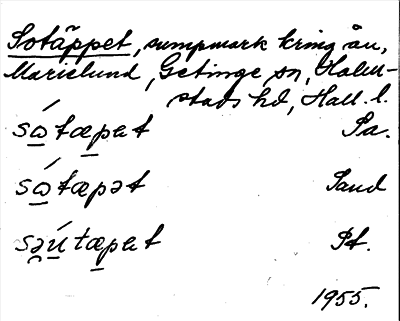 Sotäppet, sumpmark kring ån,
Marielund, Getinge sn, Halm-
stads hd, Hall. l.
sá̱tæp̱et Pa.
sá̱tæpət Sand
sə̯ú̱tæp̱et Pt.
1955.